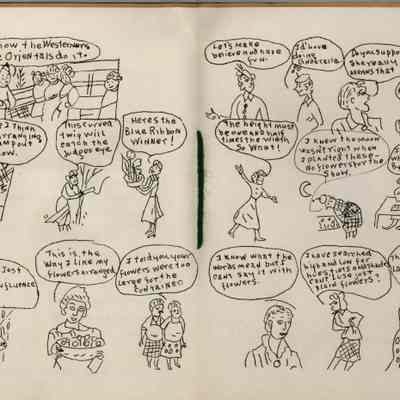 how the Westerners
Orientals do it.
I Think
arranging
ampout
now.
This curved
twig will
catch the
Judges eye
Here's the
Blue Ribbon
Winner!
Just
nfluence
This is the
Way I like my
flowers arranged.
I told you your
flowers were too
large for the
container
Let's make
believe and have
fun.
I'd have
doing
Do you suppose
she really
means that
The height must
be one and a half
times the width
So What!
I knew the moon
wasn't right when
I planted these-
No flowers for the
Show.
I know what the
words mean but I
can't say it with
flowers.
I have searched
high and low for
hues tints and shades
can't I use just
plain flowers?